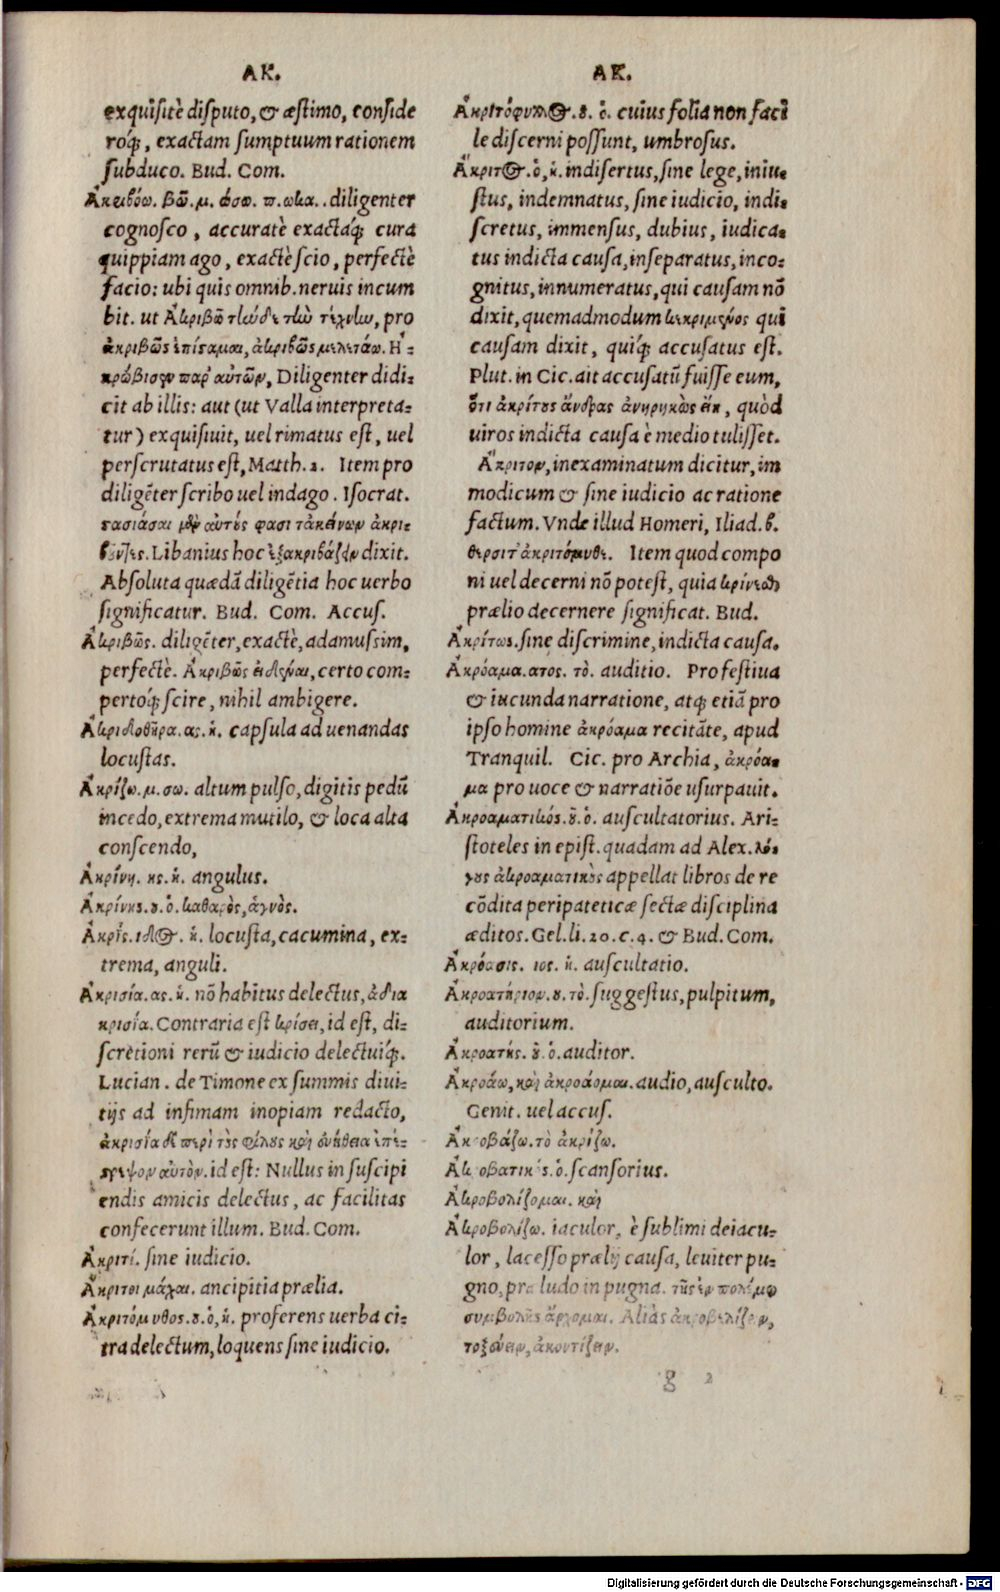 AK.
exquisitè disputo, & æstimo, conside
roq́;, exactam sumptuum rationem
subduco. Bud. Com.
Ἀκριβόω. βῶ. μ. ώσω. π. ωκα. . diligenter
cognosco, accuratè exactaq́; cura
quippiam ago, exactè scio, perfectè
facio: ubi quis omnib. neruis incum
bit. ut Ἀκριβῶ τὼδε τὼ τέχνω, pro
ἀκριβῶς ἐπίσταμαι, ἀκριβῶς μελετάω. Ἠ-
κρίβωσεν παρ' αὐτῶν, Diligenter didi-
cit ab illis: aut (ut Valla interpreta-
tur) exquisiuit, uel rimatus est, uel
perscrutatus est, Matth. 2. Item pro
diligẽter scribo uel indago. Isocrat.
στασιάσαι μὲν αὐτούς φασι τἀκείνων ἀκρι-
βοῦντες. Libanius hoc ἐξακριβάζειν dixit.
Absoluta quædã diligẽtia hoc uerbo
significatur. Bud. Com. Accus.
Ἀκριβῶς. diligẽter, exactè, adamussim,
perfectè. Ἀκριβῶς εἰδέναι, certo com-
pertoq́; scire, nihil ambigere.
Ἀκριδοθήρα. ας. ἡ. capsula ad uenandas
locustas.
Ἀκρίζω. μ. σω. altum pulso, digitis pedũ
incedo, extrema mutilo, & loca alta
conscendo,
Ἀκρίνη. ης. ἡ. angulus.
Ἀκρίνης. ου. ὁ. καθαρὸς, ἁγνὸς.
Ἀκρὶς. ίδος. ἡ. locusta, cacumina, ex-
trema, anguli.
Ἀκρισία. ας. ἡ. nõ habitus delectus, ἀδια
κρισία. Contraria est κρίσει, id est, di-
scretioni rerũ & iudicio delectuiq́;.
Lucian. de Timone ex summis diui-
tijs ad infimam inopiam redacto,
ἀκρισία δὲ περὶ τοὺς φίλους καὶ εὐήθεια ἐπέ-
τριψεν αὐτὸν. id est: Nullus in suscipi
endis amicis delectus, ac facilitas
confecerunt illum. Bud. Com.
Ἀκριτί. sine iudicio.
Ἄκριτοι μάχαι. ancipitia prælia.
Ἀκριτόμυθος. ου. ὁ, ἡ. proferens uerba ci-
tra delectum, loquens sine iudicio.
AK.
Ἀκριτόφυλλος. ου. ὁ. cuius folia non faci
le discerni possunt, umbrosus.
Ἄκριτος. ὁ, ἡ. indisertus, sine lege, iniu-
stus, indemnatus, sine iudicio, indi-
scretus, immensus, dubius, iudica-
tus indicta causa, inseparatus, inco-
gnitus, innumeratus, qui causam nõ
dixit, quemadmodum κεκριμένος qui
causam dixit, quiq́; accusatus est.
Plut. in Cic. ait accusatũ fuisse eum,
ὅτι ἀκρίτους ἄνδρας ἀνῃρηκὼς εἴη, quòd
uiros indicta causa è medio tulisset.
Ἄκριτον, inexaminatum dicitur, im
modicum & sine iudicio ac ratione
factum. Vnde illud Homeri, Iliad. β.
θερσῖτ' ἀκριτόμυθε. Item quod compo
ni uel decerni nõ potest, quia κρίνεσθαι
prælio decernere significat. Bud.
Ἀκρίτως. sine discrimine, indicta causa.
Ἀκρόαμα. ατος. τὸ. auditio. Pro festiua
& iucunda narratione, atq́; etiã pro
ipso homine ἀκρόαμα recitãte, apud
Tranquil. Cic. pro Archia, ἀκρόα-
μα pro uoce & narratiõe usurpauit.
Ἀκροαματικός. οῦ. ὁ. auscultatorius. Ari-
stoteles in epist. quadam ad Alex. λό-
γους ἀκροαματικοὺς appellat libros de re
cõdita peripateticæ sectæ disciplina
æditos. Gel. li. 20. c. 4. & Bud. Com.
Ἀκρόασις. ιος. ἡ. auscultatio.
Ἀκροατήριον. ου. τὸ. suggestus, pulpitum,
auditorium.
Ἀκροατής. οῦ. ὁ. auditor.
Ἀκροάω, καὶ ἀκροάομαι. audio, ausculto.
Genit. uel accus.
Ἀκροβάζω. τὸ ἀκρίζω.
Ἀκροβατικός. ὁ. scansorius.
Ἀκροβολίζομαι. καὶ
Ἀκροβολίζω. iaculor, è sublimi deiacu-
lor, lacesso prælij causa, leuiter pu-
gno, præludo in pugna. τῆς ἐν πολέμῳ
συμβολῆς ἄρχομαι. Aliàs ἀκροβολίζειν,
τοξεύειν, ἀκοντίζειν.
g 2
Digitalisierung gefördert durch die Deutsche Forschungsgemeinschaft - DFG